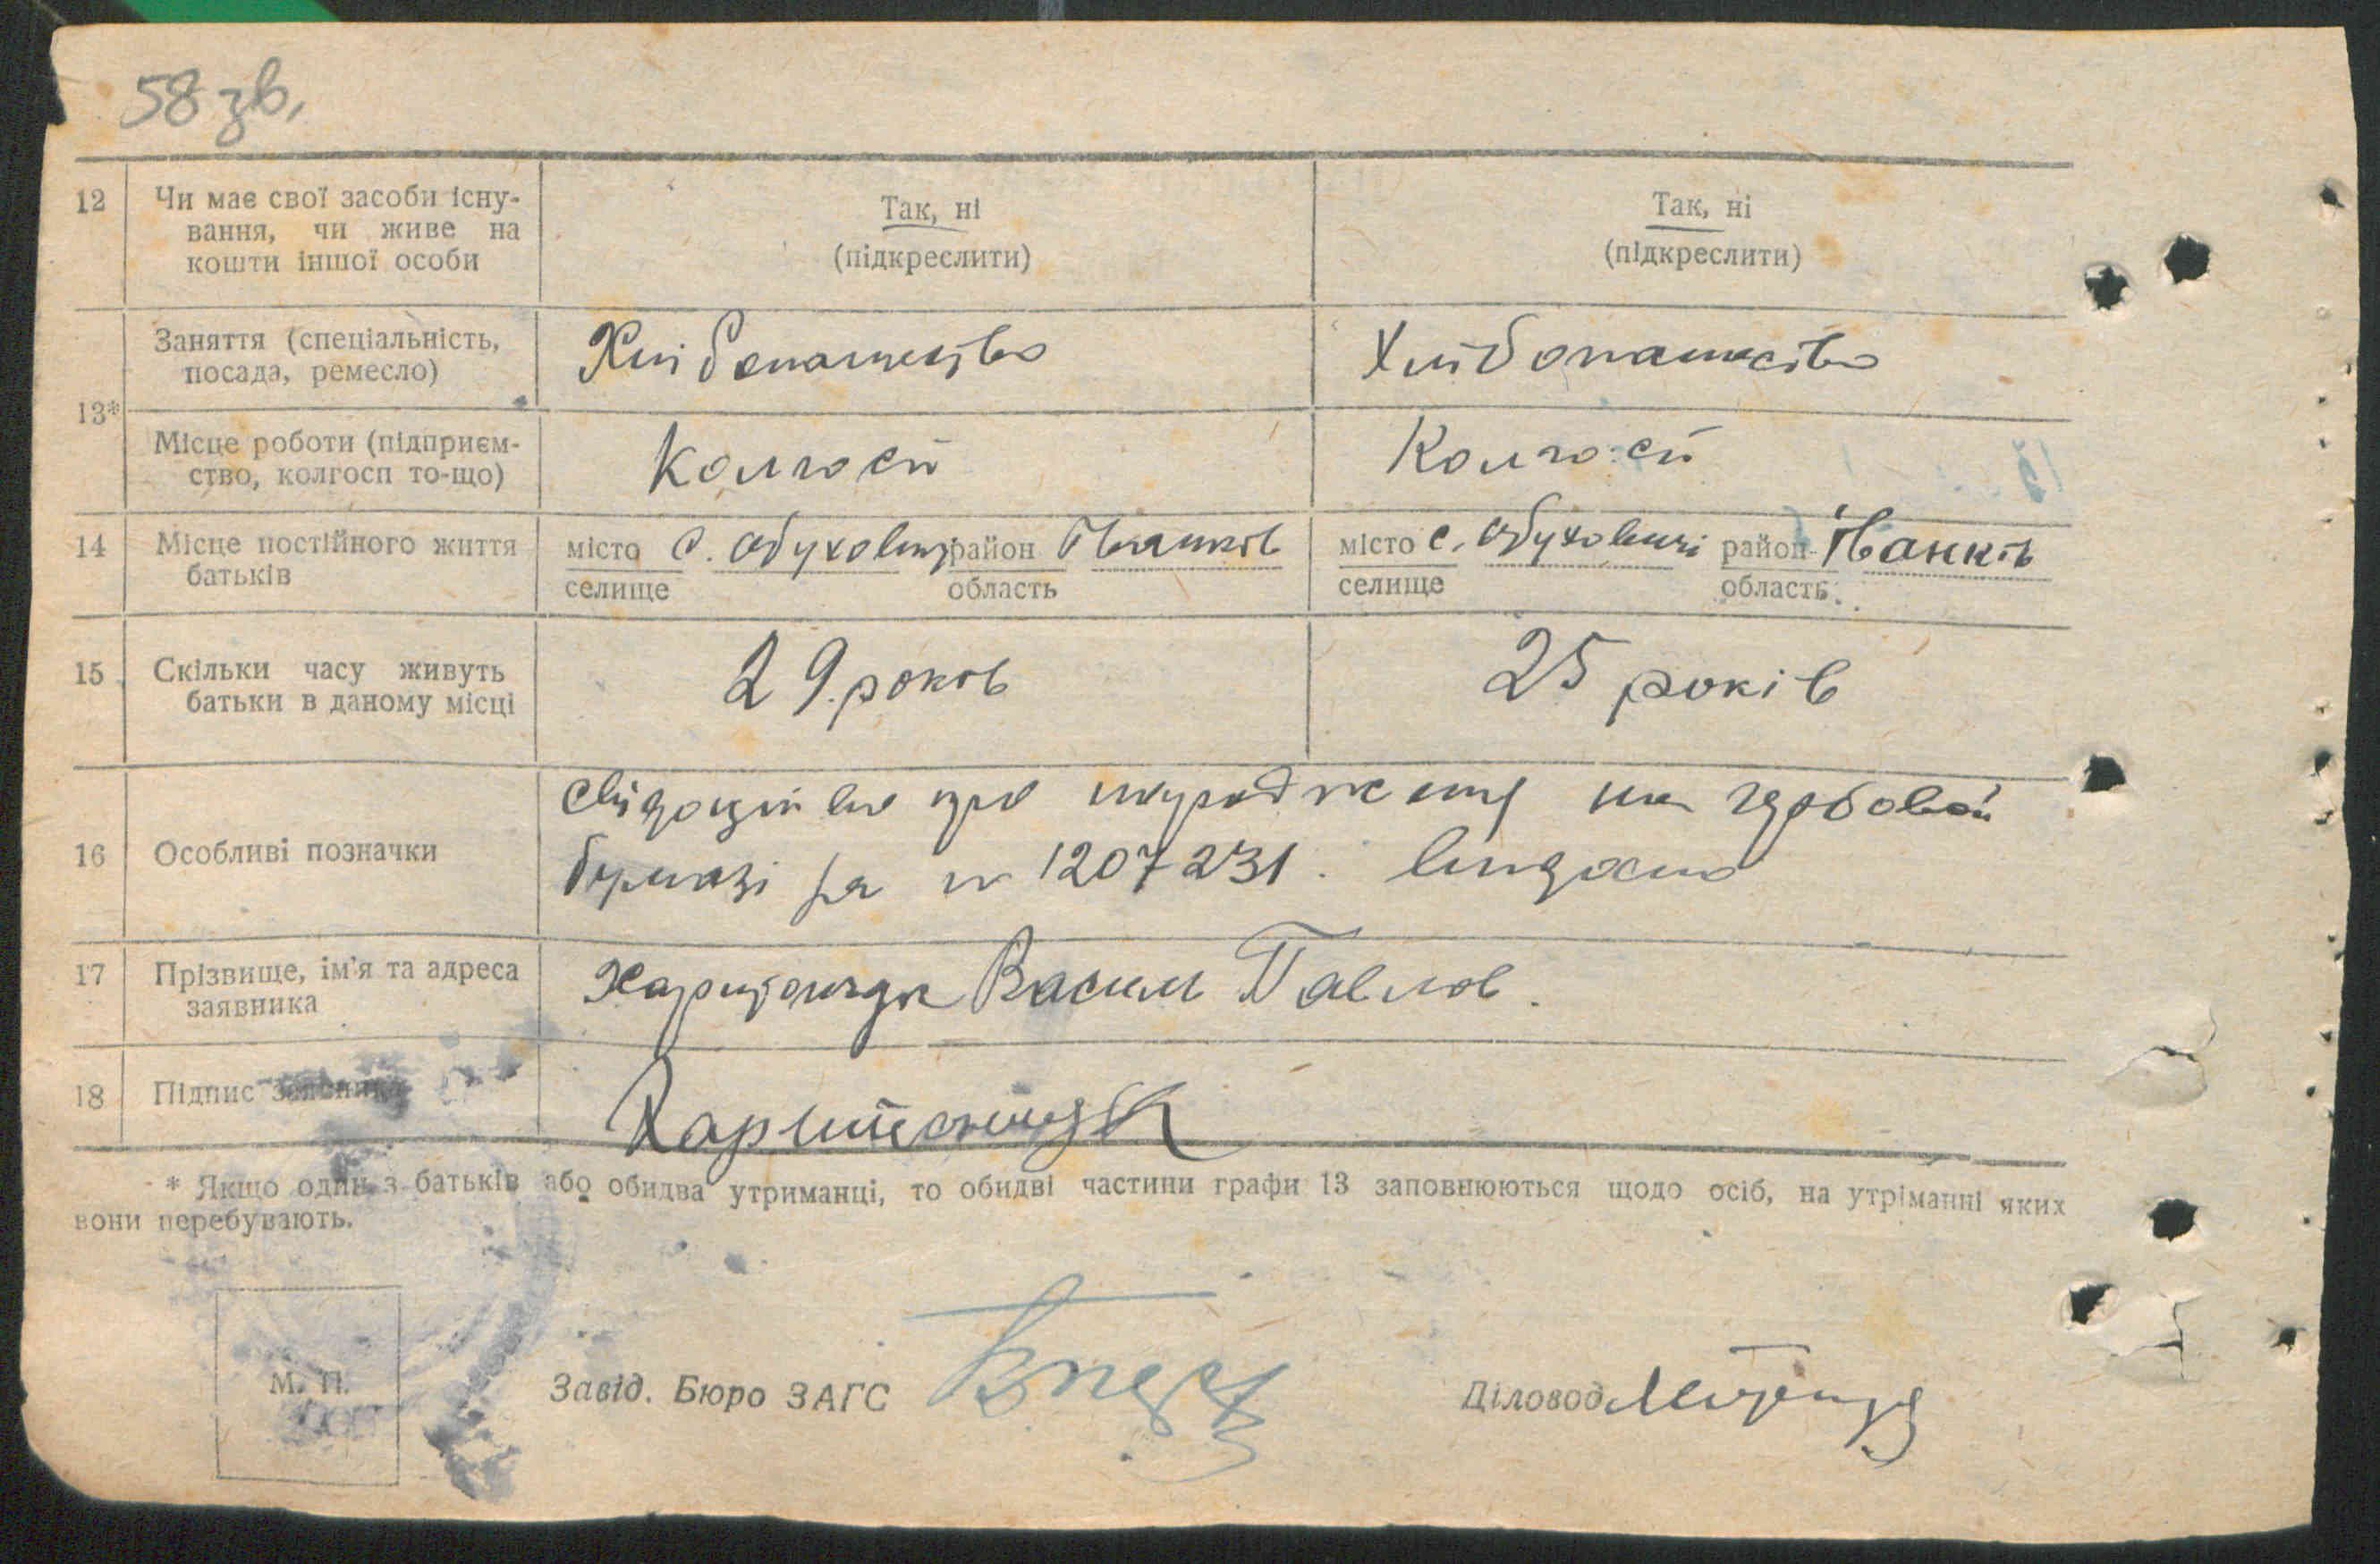 58 зв.
12 Чи має свої засоби існу-
вання, чи живе на
кошти іншої особи
Так, ні
(підкреслити)
Так, ні
(підкреслити)
13*
Заняття (спеціальність,
посада, ремесло)
Хлібопашество
Хлібопашество
Місце роботи (підприєм-
ство, колгосп то-що)
Колгосп
Колгосп
14 Місце постійного життя
батьків
місто с. Обуховичі район Іванків
селище область
місто с. Обуховичі район Іванків
селище область
15 Скільки часу живуть
батьки в даному місці
29 років
25 років
16 Особливі позначки
свідоцтво про народження на гербовой
бумазі за № 1207231. видано
17 Прізвище, ім'я та адреса
заявника
Харитончук Василь Павлов.
18 Підпис заявника
Харитончук
* Якщо один з батьків або обидва утриманці, то обидві частини графи 13 заповнюються щодо осіб, на утріманні яких
вони перебувають.
М. П.
Завід. Бюро ЗАГС
Діловод